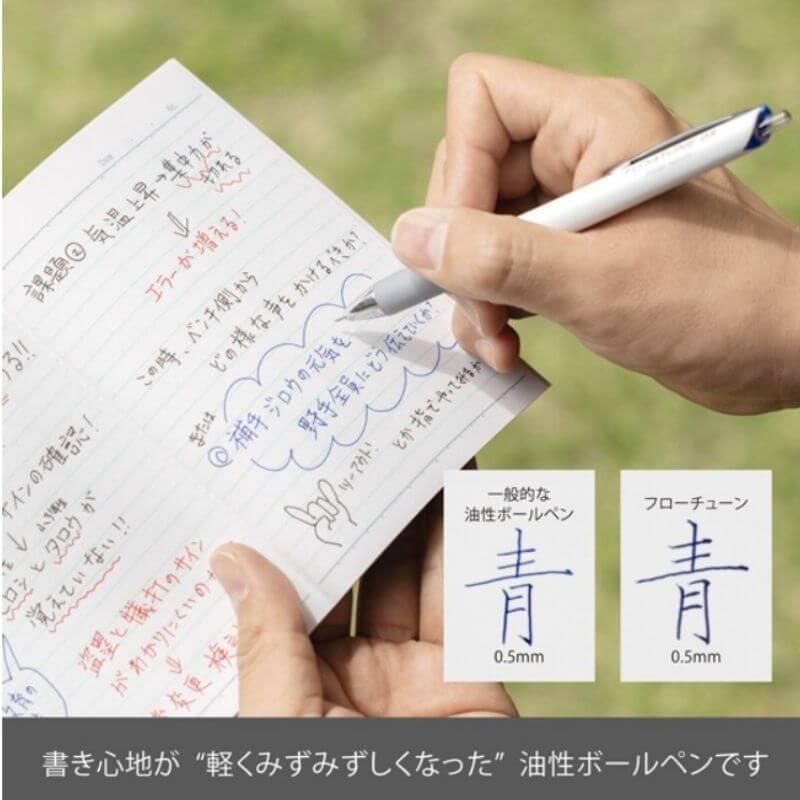 課題② 気温上昇→集中力が
切れる
↓
エラーが増える!
この時、ベンチ側から
どの様な声をかけるべきか?
または
◎補手ジロウの元気を
野手全員にどう伝えていくか?
ツーアウト!
とか指でやってみるか
る!!
サインの確認!
ヒロシとタロウが
覚えていない!!
盗塁と犠打のサイン
がわかりにくいの
↓
変更 検討
一般的な
油性ボールペン
青
0.5mm
フローチューン
青
0.5mm
書き心地が “軽くみずみずしくなった” 油性ボールペンです